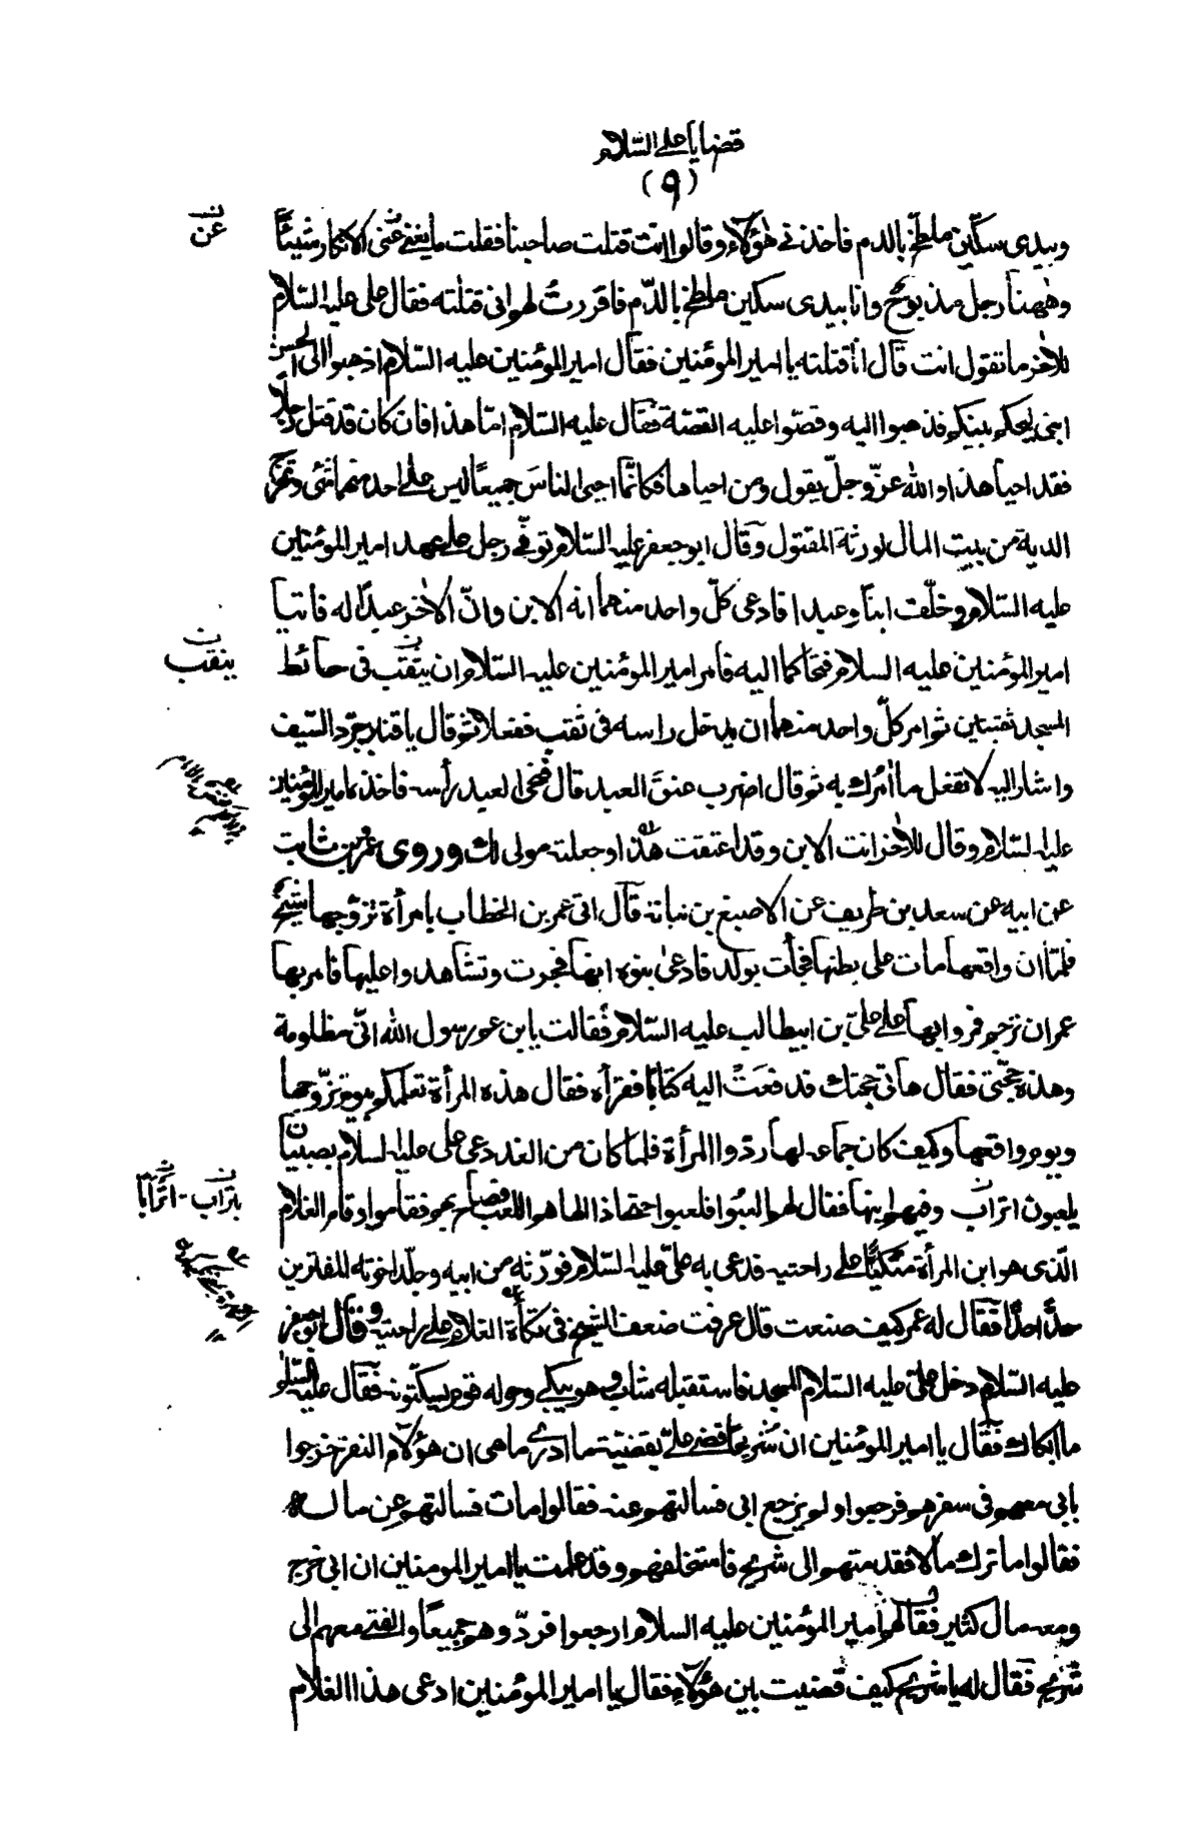 قضايا على السّلام
(٩)
وبيدى سكّين ملطّخ بالدم فاخذنى هٰؤلآء وقالوا انت قتلت صاحبنا فقلت ما يغنى عنّى الانكار شيئًا
عن
وهٰهنا رجل مذبوح وانا بيدى سكين ملطخ بالدّم فاقررتُ لهم انى قتلته فقال على عليه السّلام
للاٰخر ما تقول انت قال انا قتلته يا امير المؤمنين فقال امير المؤمنين عليه السّلام اذهبوا الى الحسن
ابنى ليحكم بينكم فذهبوا اليه وقصّوا عليه القصّة فقال عليه السّلام امّا هذا فان كان قد قتل رجلًا
فقد احيا هذا والله عزّ وجلّ يقول ومن احياها فكانّما احيى الناسَ جميعًا ليس على احد منهما شئ وتخرج
الدية من بيت المال لورثة المقتول وقال ابو جعفر عليه السّلام توفّى رجل على عهد امير المؤمنين
عليه السّلام وخلّف ابنًا وعبدا فادعى كلّ واحد منهما انه الابن وانّ الاٰخر عبدًا له فاتيا
امير المؤمنين عليه السلام فتحاكما اليه فامر امير المؤمنين عليه السّلام ان يثقب فى حائط
ينقب
المسجد ثقبتين ثم امر كلّ واحد منهما ان يدخل راسه فى ثقب ففعلا ثم قال يا قنبر جرّد السّيف
واشار اليه لا تفعل ما اٰمُرك به ثم قال اضرب عنق العبد قال فنحّى العبد رأسه فاخذه امير المؤمنين
عليه السّلام وقال للاٰخر انت الابن وقد اعتقت هٰذا وجعلته مولى لك وروى عمرو بن ثابت
عن ابيه عن سعد بن طريف عن الاصبغ بن نباتة قال اتى عمر بن الخطاب بامرأة تزوّجها شيخ
فلمّا ان واقعها مات على بطنها فجاءت بولد فادعىٰ بنوه انها فجرت وتشاهدوا عليها فامر بها
عمر ان ترجم فمروا بها على علىّ بن ابيطالب عليه السّلام فقالت يا بن عم رسول الله انّى مظلومة
وهذه حجّتى فقال هاتى حجتك فدفعَتْ اليه كتابًا فقرأه فقال هذه المرأة تعلمكم بيوم تزوّجها
ويوم واقعها وكيف كان جماعه لها ردّوا المرأة فلما كان من الغد دعى على عليه السلام بصبيان
يلعبون اتراب وفيهم ابنها فقال لهم العبُوا فلعبوا حتى اذا الهاهم اللعب فصاح بهم فقاموا وقام الغلام
بتراب - اترابًا
الّذى هو ابن المرأة متّكيًا على راحتيه فدعى به علىّ عليه السّلام فورّثه من ابيه وجلّد اخوته المفترين
حدًا حدًّا فقال له عمر كيف صنعت قال عرفت ضعف الشيخ فى تكأة الغلام على راحتيه وقال ابو جعفر
عليه السّلام دخل علىّ عليه السّلام المسجد فاستقبله شاب وهو يبكى وحوله قوم يسكّتونه فقال عليه السّلم
ما ابكاك فقال يا امير المؤمنين ان شُريحًا قضى علىّ بقضيّة ما ادرى ما هى ان هؤلآء النفر خرجوا
بابى معهم فى سفرهم فرجعوا ولم يرجع ابى فسالتهم عنه فقالوا مات فسالتهم عن ماله
فقالوا ما ترك مالا فقدمتهم الى شريح فاستحلفهم وقد علمت يا امير المومنين ان ابى خرج
ومعه مال كثير فقال لهم امير المؤمنين عليه السلام ارجعوا فردّوهم جميعًا والفتى معهم الى
شريح فقال له يا شريح كيف قضيت بين هؤلآء فقال يا امير المؤمنين ادعى هذا الغلام